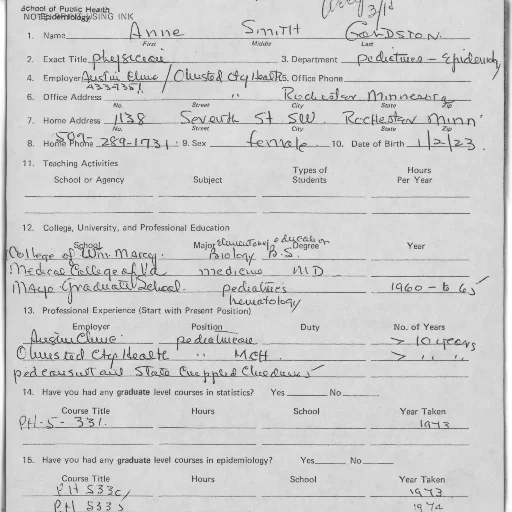 School of Public Health
Epidemiology
NOTE USING INK
1. Name Anne Smith
First Middle Last
2. Exact Title physician 3. Department pediatrics - Epidemi
4. Employer Austin Clinic / Olmsted Cty Health 5. Office Phone
4334351
6. Office Address " Rochester Minnesota
No. Street City State Zip
7. Home Address 1138 Seventh St. SW. Rochester Minn
No. Street City State Zip
8. Home Phone 507- 289-1731 9. Sex female 10. Date of Birth 1/2/23
11. Teaching Activities
School or Agency Subject Types of Students Hours Per Year
12. College, University, and Professional Education
School Major Degree Year
College of Wm. & Mary Biology Elementary education B.S.
Medical College of Va medicine MD
Mayo Graduate School. pediatrics 1960 - to 65
hematology
13. Professional Experience (Start with Present Position)
Employer Position Duty No. of Years
Austin Clinic pediatrician > 10 years
Olmsted Cty Health " MCH. > " "
ped consultant State Crippled Children's
14. Have you had any graduate level courses in statistics? Yes No
Course Title Hours School Year Taken
PH-5-331. 1973
15. Have you had any graduate level courses in epidemiology? Yes No
Course Title Hours School Year Taken
PH 533c/ 1973
PH 533 1974